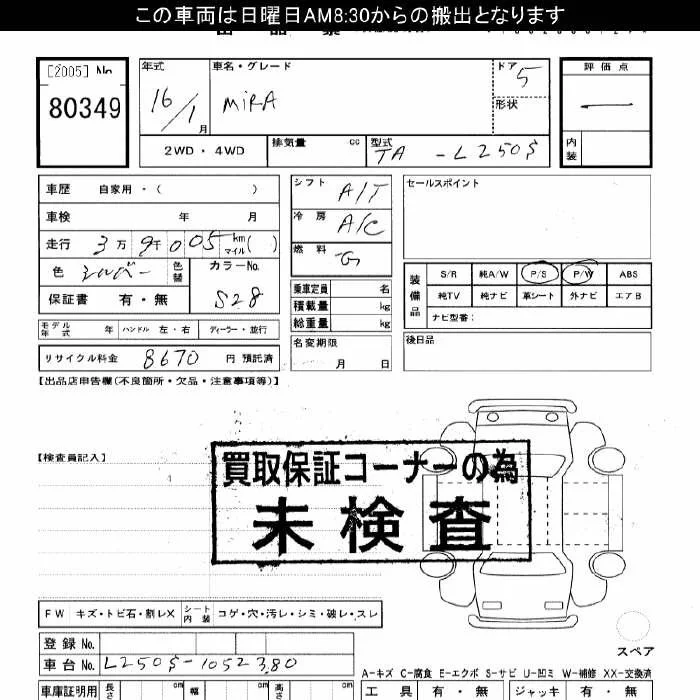 この車両は日曜日AM8:30からの搬出となります
[2005] No
80349
年式
16/1月
車名・グレード
MIRA
ドア
5
形状
評価点
—
内装
2WD・4WD
排気量 cc
型式
TA-L250S
車歴 自家用・( )
車検 年 月
走行 3万9千005 km マイル( )
色 シルバー 色替
カラーNo.
S28
保証書 有・無
モデル年式 年 ハンドル 左・右 ディーラー・並行
リサイクル料金 8670 円 預託済
シフト A/T
冷房 A/C
燃料 G
乗車定員 名
積載量 kg
総重量 kg
名変期限
月 日
セールスポイント
装備品
S/R 純A/W P/S P/W ABS
純TV 純ナビ 革シート 外ナビ エアB
ナビ型番:
後日品
【出品店申告欄(不良箇所・欠品・注意事項等)】
【検査員記入】
買取保証コーナーの為
未検査
FW キズ・トビ石・割レX シート内装 コゲ・穴・汚レ・シミ・破レ・スレ
登録No.
車台No. L250S-1052380
スペア
A-キズ C-腐食 E-エクボ S-サビ U-凹ミ W-補修 XX-交換済
車庫証明用 長さ cm 幅 cm 高さ cm
工具 有・無 ジャッキ 有・無